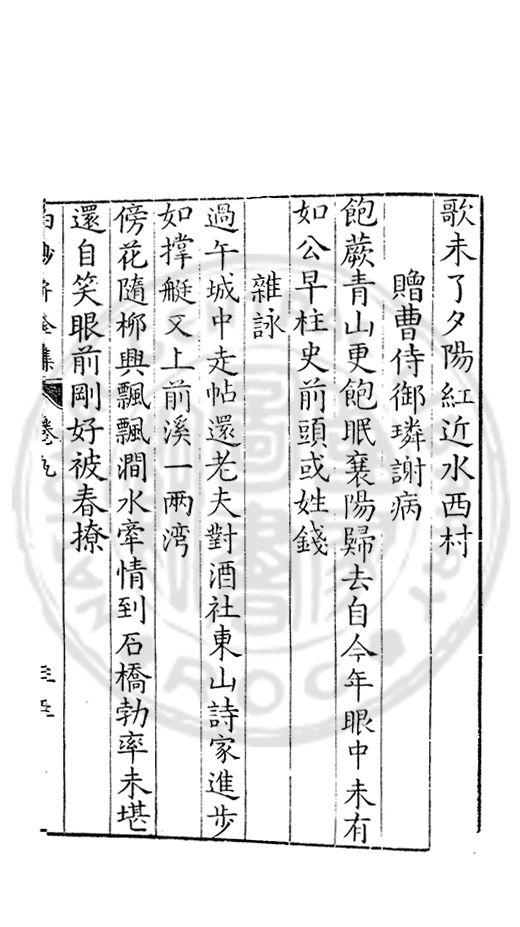 歌未了夕陽紅近水西村
贈曹侍御璘謝病
飽蕨青山更飽眠襄陽歸去自今年眼中未有
如公早柱史前頭或姓錢
雜詠
過午城中走帖還老夫對酒社東山詩家進步
如撑艇又上前溪一兩湾
傍花隨柳興飄飄澗水牽情到石橋勃率未堪
還自笑眼前剛好被春撩
全集 卷九